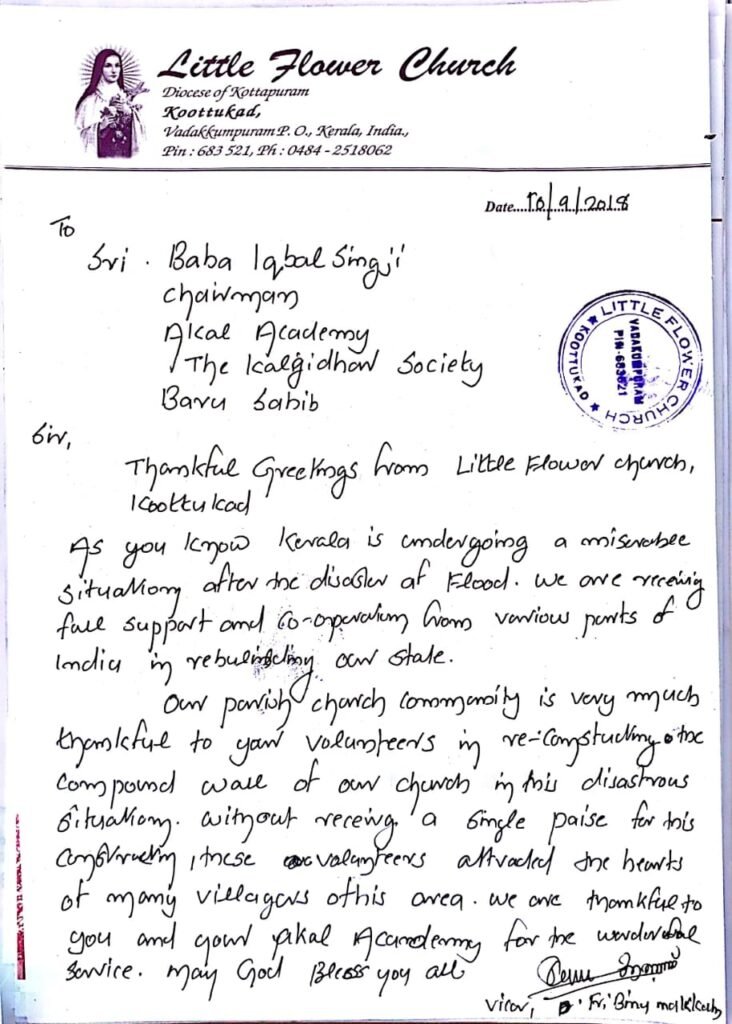 Little Flower Church
Diocese of Kottapuram
Koottukad,
Vadakkumpuram P. O., Kerala, India.,
Pin : 683 521, Ph : 0484 - 2518062
Date....10/9/2018
To
Sri . Baba Iqbal Singji
Chairman
Akal Academy
The Kalgidhar Society
Baru Sahib
LITTLE FLOWER CHURCH
★ KOOTTUKAD ★
VADAKUMPURAM
PIN-683521
Sir,
Thankful Greetings from Little Flower church,
Koottukad
As you know Kerala is undergoing a miserable
situation after the disaster of Flood. We are receiving
full support and co-operation from various parts of
India in rebuilding our state.
Our parish church community is very much
thankful to your volunteers in re-constructing the
compound wall of our church in this disastrous
situation. Without receiving a single paise for this
construction, these volunteers attracted the hearts
of many villagers of this area. We are thankful to
you and your Akal Academy for the wonderful
service. May God Bless you all
Vicar, Fr. Binu